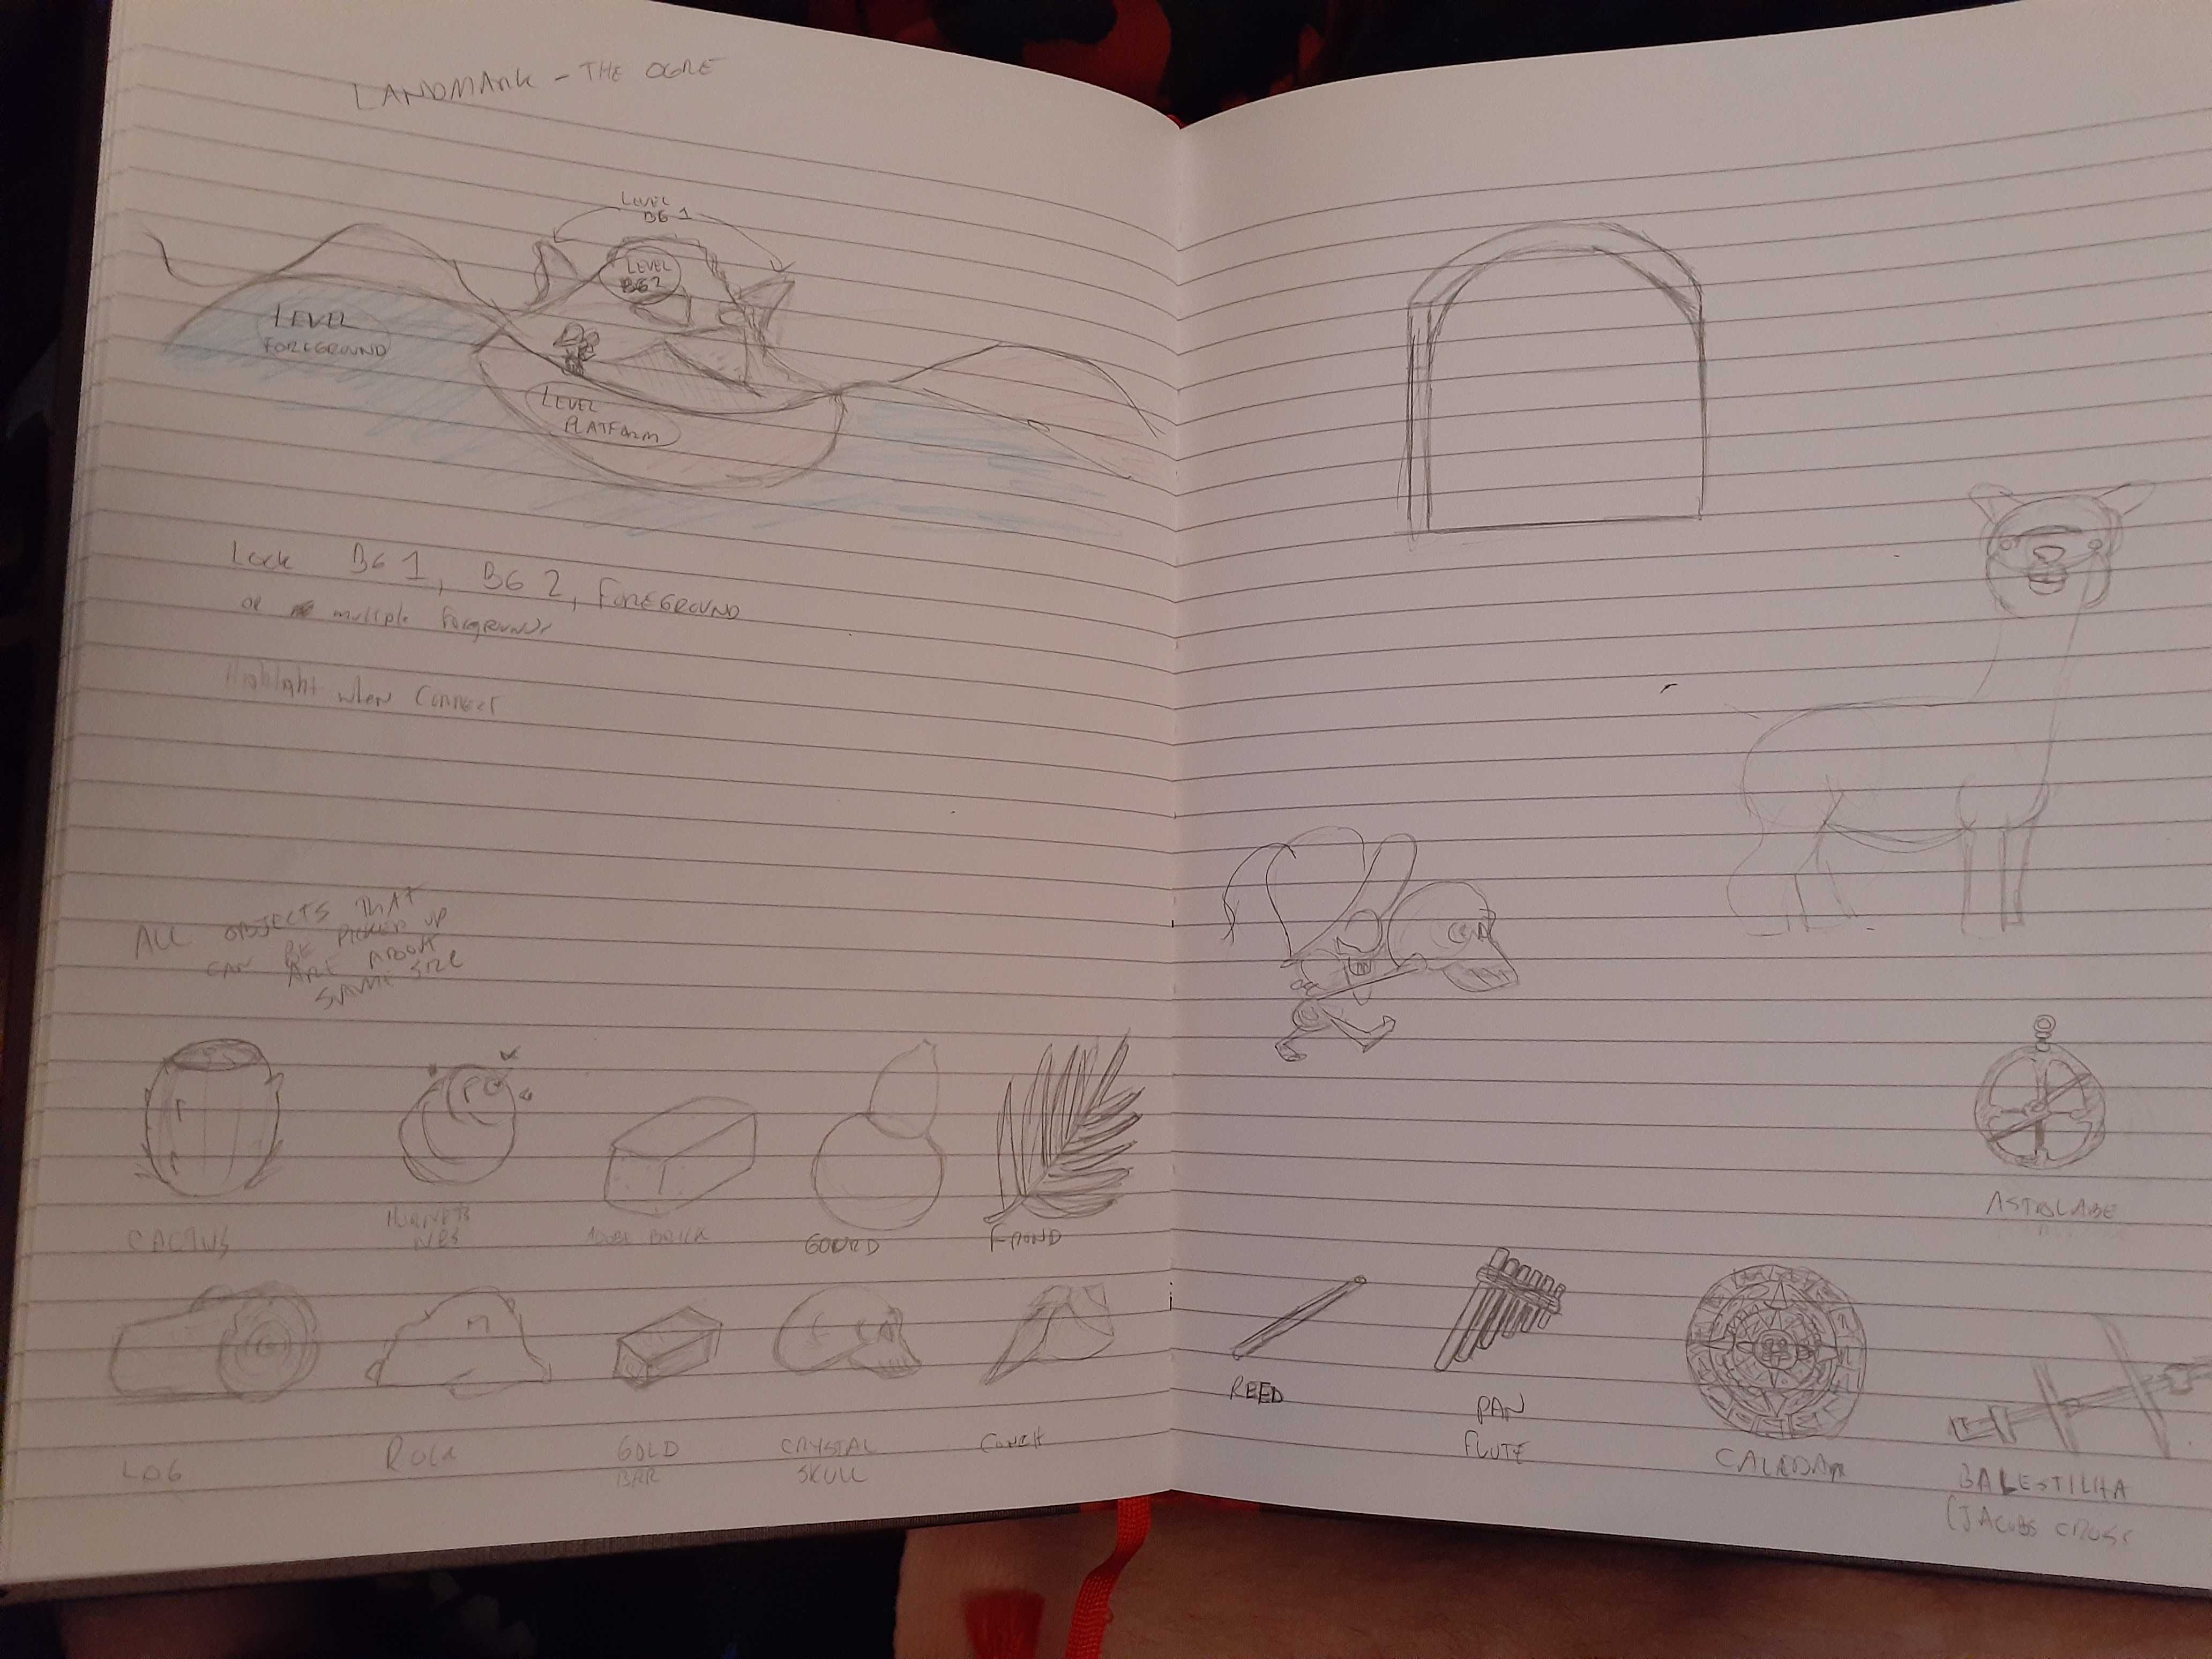 LANDMARK - THE OGRE
LEVEL
BG 1
LEVEL
BG 2
LEVEL
FOREGROUND
LEVEL
PLATFORM
Lock BG 1, BG 2, FOREGROUND
OR multiple
Highlight when CORRECT
ALL OBJECTS THAT
CAN BE PICKED UP
ARE ABOUT
SAME SIZE
CACTUS
BRICK
GOURD
FROND
LOG
GOLD
BAR
CRYSTAL
SKULL
CONCH
ASTROLABE
REED
PAN
FLUTE
BALESTILHA
(JACOBS CROSS